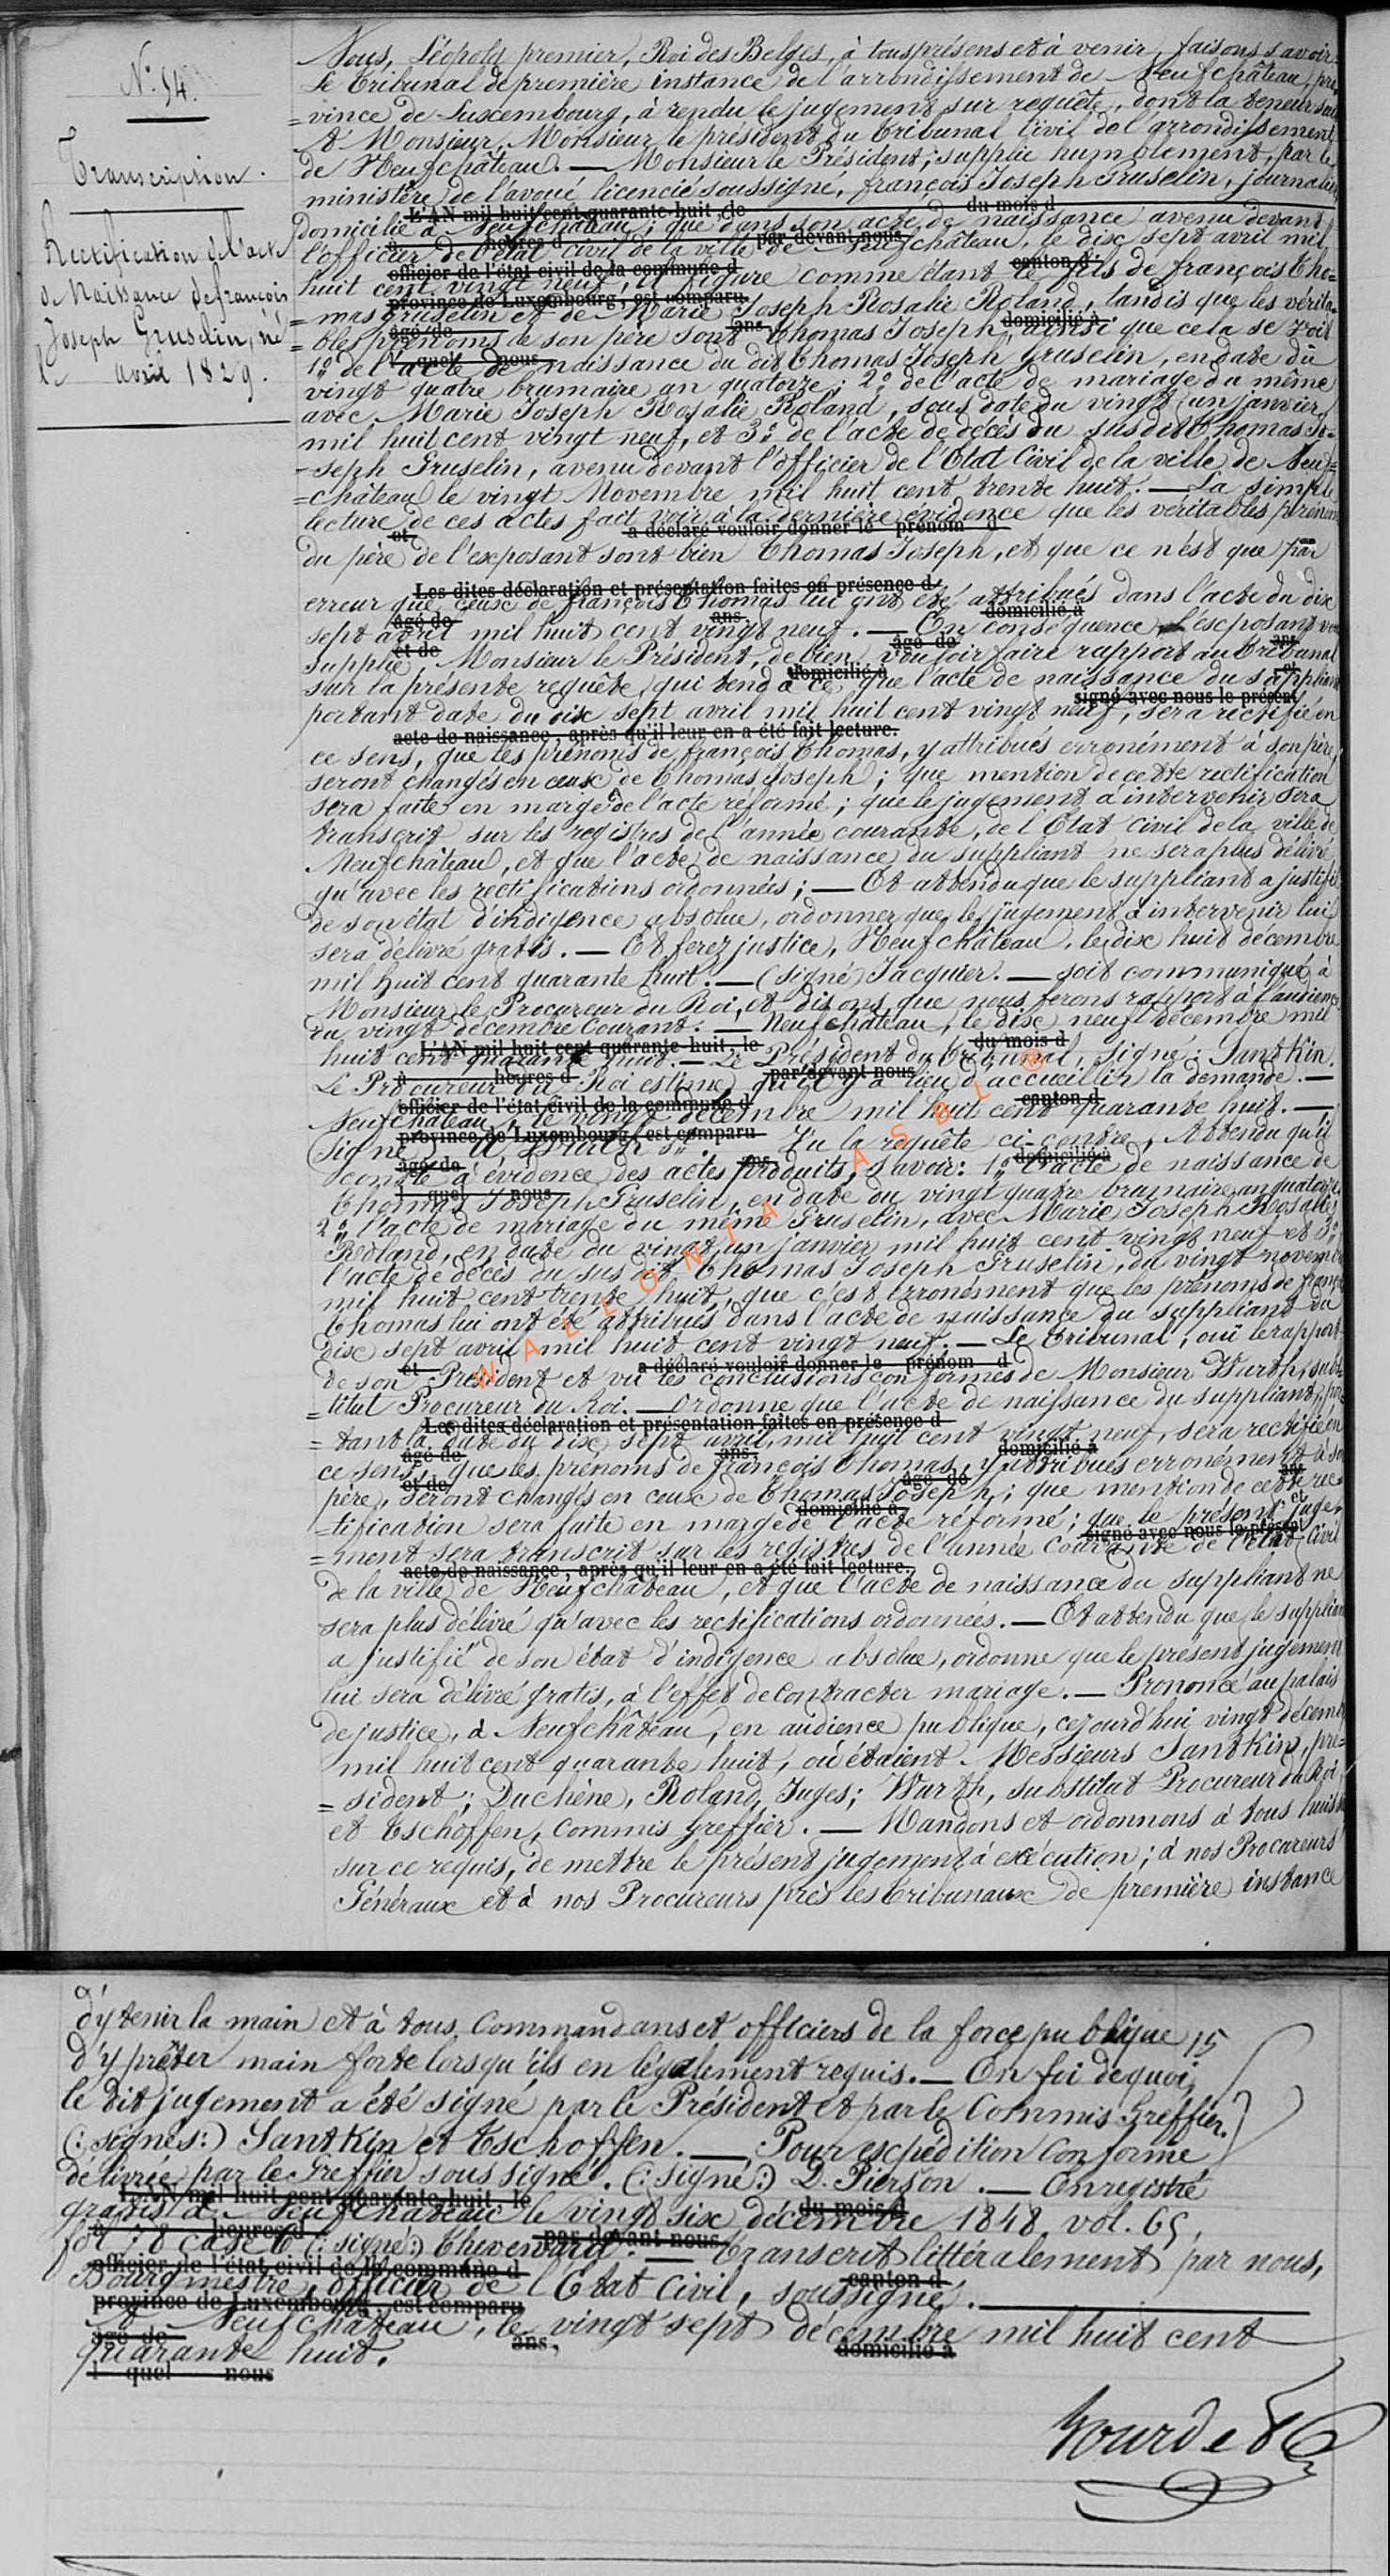 N.° 54.
Transcription.
Rectification de l'acte
de Naissance de françois
Joseph Gruselin, né
le avril 1829.
Nous, Léopold premier, Roi des Belges, à tous présens et à venir, faisons savoir
Le Tribunal de première instance de l'arrondissement de Neufchâteau, pro
=vince de Luxembourg, à rendu le jugement sur requête, dont la teneur suit
A Monsieur, Monsieur le président du Tribunal Civil de l'arrondissement
de Neufchâteau. — Monsieur le Président; supplie humblement, par le
ministère de l'avoué licencié soussigné, françois Joseph Gruselin, journalier
L'AN mil huit cent quarante-huit, de du mois d
domicilié à Neufchâteau; que dans son acte de naissance avenu devant
à heures d par devant nous
l'officier de l'état civil de la ville de Neufchâteau, le dix sept avril mil
officier de l'état civil de la commune d canton d
huit cent vingt neuf, il figure comme étant le fils de françois Tho=
province de Luxembourg, est comparu
=mas Gruselin et de Marie Joseph Rosalie Roland, tandis que les vérita=
âgé de ans domicilié à
=bles prénoms de son père sont Thomas Joseph, ainsi que cela se voit
l quel nous
1° de l'acte de naissance du dit Thomas Joseph Gruselin, en date du
vingt quatre brumaire an quatorze; 2° de l'acte de mariage du même
avec Marie Joseph Rosalie Roland, sous date du vingt un janvier
mil huit cent vingt neuf, et 3° de l'acte de décès du susdit Thomas Jo=
=seph Gruselin, avenu devant l'officier de l'Etat Civil de la ville de Neuf=
=château le vingt Novembre mil huit cent trente huit. — La simple
lecture de ces actes fait voir à la dernière évidence que les véritables prénoms
et a déclaré vouloir donner le prénom d
du père de l'exposant sont bien Thomas Joseph, et que ce n'est que par
Les dites déclaration et présentation faites en présence d
erreur que ceux de françois Thomas lui ont été attribués dans l'acte du dix
âgé de ans domicilié à
sept avril mil huit cent vingt neuf. — En conséquence, l'exposant vous
et de âgé de ans
supplie, Monsieur le Président, de bien vouloir faire rapport au Tribunal
domicilié à et
sur la présente requête, qui tend à ce que l'acte de naissance du suppliant
signé avec nous le présent
portant date du dix sept avril mil huit cent vingt neuf, sera rectifié en
acte de naissance, après qu'il leur en a été fait lecture.
ce sens, que les prénoms de françois Thomas, y attribués erronément à son père,
seront changés en ceux de Thomas Joseph; que mention de cette rectification
sera faite en marge de l'acte réformé; que le jugement à intervenir sera
transcrit sur les registres de l'année courante, de l'Etat Civil de la ville de
Neufchâteau, et que l'acte de naissance du suppliant ne sera plus délivré
qu'avec les rectifications ordonnées; — Et attendu que le suppliant a justifié
de son état d'indigence absolue, ordonner que le jugement à intervenir lui
sera délivré gratis. — Et ferez justice, Neufchâteau, le dix huit décembre
mil huit cent quarante huit. — (signé) Jacquier. — soit communiqué à
Monsieur le Procureur du Roi, et disons que nous ferons rapport à l'audience
du vingt décembre courant. — Neufchâteau, le dix neuf décembre mil
L'AN mil huit cent quarante-huit, le du mois d
huit cent quarante huit. — Le Président du Tribunal, signé: Santkin.
à heures d par devant nous
Le Procureur du Roi estime qu'il y a lieu d'accueillir la demande. —
officier de l'état civil de la commune d canton d
Neufchâteau, le vingt décembre mil huit cent quarante huit. —
province de Luxembourg, est comparu
(signé) Wurth. Vu la requête ci-contre, Attendu qu'il
âgé de ans domicilié à
conste à évidence des actes produits, savoir: 1° l'acte de naissance de
l quel nous
Thomas Joseph Gruselin, en date du vingt quatre brumaire an quatorze,
2° l'acte de mariage du même Gruselin, avec Marie Joseph Rosalie
Roland, en date du vingt un janvier mil huit cent vingt neuf et 3°
l'acte de décès du sus dit Thomas Joseph Gruselin, du vingt novembre
mil huit cent trente huit, que c'est erronément que les prénoms de françois
Thomas lui ont été attribués dans l'acte de naissance du suppliant du
dix sept avril mil huit cent vingt neuf. — Le Tribunal, ouï le rapport
et a déclaré vouloir donner le prénom d
de son Président et vu les conclusions conformes de Monsieur Wurth, subs=
=titut Procureur du Roi. — Ordonne que l'acte de naissance du suppliant, por
Les dites déclaration et présentation faites en présence d
=tant la date du dix sept avril mil huit cent vingt neuf, sera rectifié en
âgé de ans, domicilié à
ce sens, que les prénoms de françois Thomas, y attribués erronément à son
et de âgé de ans
père, seront changés en ceux de Thomas Joseph; que mention de cette rec=
domicilié à et
=tification sera faite en marge de l'acte réformé; que le présent juge=
signé avec nous le présent
=ment sera transcrit sur les registres de l'année courante de l'état Civil
acte de naissance, après qu'il leur en a été fait lecture.
de la ville de Neufchâteau, et que l'acte de naissance du suppliant ne
sera plus délivré qu'avec les rectifications ordonnées. — Et attendu que le suppliant
a justifié de son état d'indigence absolue, ordonne que le présent jugement
lui sera délivré gratis, à l'effet de contracter mariage. — Prononcé au palais
de justice, à Neufchâteau, en audience publique, cejourd'hui vingt décembre
mil huit cent quarante huit, où étaient Messieurs Santkin, pré=
=sident; Duchêne, Roland, Juges; Wurth, substitut Procureur du Roi
et Eschoffen, Commis Greffier. — Mandons et ordonnons à tous huissiers
sur ce requis, de mettre le présent jugement à exécution; à nos Procureurs
Généraux et à nos Procureurs près les Tribunaux de première instance
WALLONIA ASBL ®
d'y tenir la main et à tous Commandans et officiers de la force publique 15
d'y prêter main forte lorsqu'ils en légalement requis. — En foi de quoi
le dit jugement a été signé par le Président et par le Commis Greffier.
(: signés:) Santkin et Eschoffen. — Pour expédition Conforme
délivrée par le Greffier soussigné. (: signé:) D. Pierson. — Enregistré
L'AN mil huit cent quarante-huit, le du mois d
gratis à Neufchâteau le vingt six décembre 1848 vol. 65,
à heures d par devant nous
fol 78 case 6 (: signé:) — Transcrit littéralement par nous,
officier de l'état civil de la commune d canton d
Bourgmestre, officier de l'Etat Civil, soussigné.
province de Luxembourg, est comparu
A Neufchâteau, le vingt sept décembre mil huit cent
âgé de ans, domicilié à
quarante huit.
l quel nous